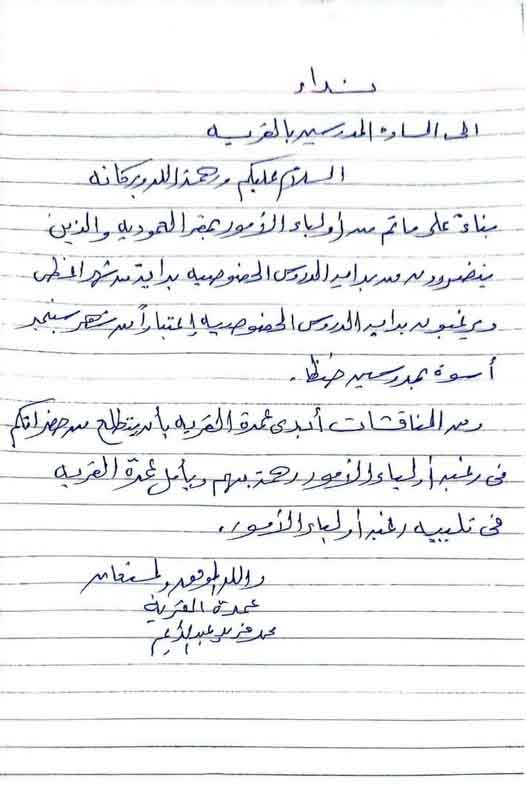 نداء
الى السادة المدرسين بالقريه
السلام عليكم ورحمة الله وبركاته
بناءً على ما تم من أولياء الأمور بمقر العموديه والذين
يتضررون من بدايه الدروس الخصوصيه بداية من شهر اغسطس
ويرغبون بدايه الدروس الخصوصيه إعتباراً من شهر سبتمبر
أسوة بمدرسين
ومن المناقشات أبدى عمدة القريه بأن يتطلع من حضراتكم
فى رغبه أولياء الأمور رحمة بهم ويأمل عمدة القريه
فى تلبيه رغبه أولياء الأمور.
والله الموفق والمستعان
عمدة القرية
محمد